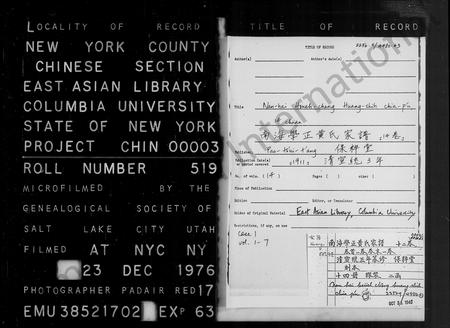 LOCALITY OF RECORD
NEW YORK COUNTY
CHINESE SECTION
EAST ASIAN LIBRARY
COLUMBIA UNIVERSITY
STATE OF NEW YORK
PROJECT CHIN 00003
ROLL NUMBER 519
MICROFILMED BY THE
GENEALOGICAL SOCIETY OF
SALT LAKE CITY UTAH
FILMED AT NYC NY
23 DEC 1976
PHOTOGRAPHER PADAIR RED 17
EMU 38521702 EXP 63
TITLE OF RECORD
TITLE OF RECORD
Author(s)
Author's date(s)
Title
Huang-shih chia-p'u
南海學正黃氏家譜 14卷
Publisher
Pao-tsui-t'ang
保粹堂
Publication Date(s)
or period covered
1911
清宣統3年
No. of vols. (14)
Pages ( )
other ( )
Place of Publication
Edition
Editor, or Translator
Holder of Original Material East Asian Library, Columbia University
Restrictions, if any, on use
vol. 1-7
南海學正黃氏家譜 十二卷
清宣統三年 保粹堂
十四冊 二函
OCT 24 1940
International